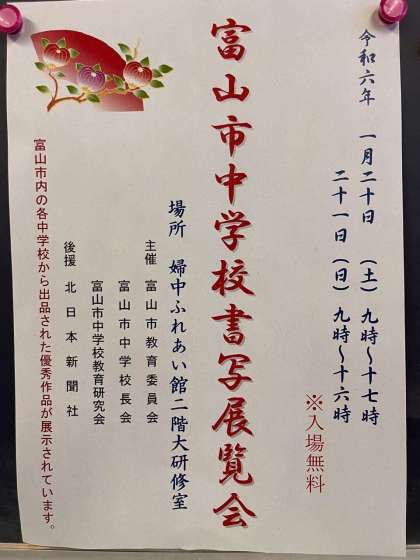 令和六年 一月二十日 (土) 九時～十七時
二十一日 (日) 九時～十六時
※入場無料
富山市中学校書写展覧会
場所 婦中ふれあい館二階大研修室
主催 富山市教育委員会
富山市中学校長会
富山市中学校教育研究会
後援 北日本新聞社
富山市内の各中学校から出品された優秀作品が展示されています。